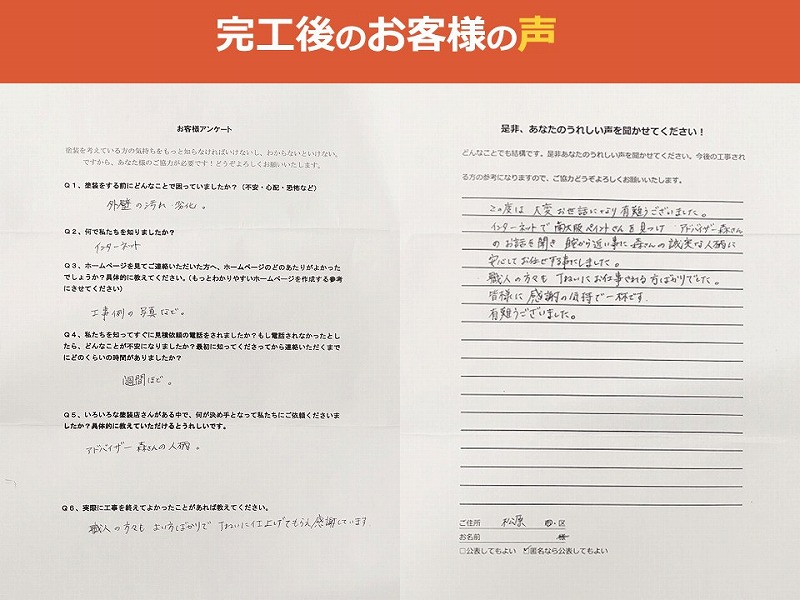 完工後のお客様の声
お客様アンケート
塗装を考えている方の気持ちをもっと知らなければいけないし、わからないといけない。
ですから、あなた様のご協力が必要です！どうぞよろしくお願いいたします。
Q1、塗装をする前にどんなことで困っていましたか？（不安・心配・恐怖など）
外壁の汚れ・劣化。
Q2、何で私たちを知りましたか？
インターネット
Q3、ホームページを見てご連絡いただいた方へ、ホームページのどのあたりがよかった
でしょうか？具体的に教えてください。（もっとわかりやすいホームページを作成する参考
にさせてください）
工事例の写真など。
Q4、私たちを知ってすぐに見積依頼の電話をされましたか？もし電話されなかったとし
たら、どんなことが不安になりましたか？最初に知ってくださってから連絡いただくまで
にどのくらいの時間がありましたか？
1週間ほど。
Q5、いろいろな塗装店さんがある中で、何が決め手となって私たちにご依頼くださいま
したか？具体的に教えていただけるとうれしいです。
アドバイザー森さんの人柄。
Q6、実際に工事を終えてよかったことがあれば教えてください。
職人の方々もよい方ばかりで丁ねいに仕上げてもらえ感謝しています
是非、あなたのうれしい声を聞かせてください！
どんなことでも結構です。是非あなたのうれしい声を聞かせてください。今後の工事され
る方の参考になりますので、ご協力どうぞよろしくお願いいたします。
この度は大変お世話になり有難うございました。
インターネットで南大阪ペイントさんを見つけ アドバイザー森さん
のお話を聞き 家から近い事に森さんの誠実な人柄に
安心してお任せする事にしました。
職人の方々も丁ねいにお仕事される方ばかりでした。
皆様に感謝の気持で一杯です。
有難うございました。
ご住所 松原 市・区
お名前 様
□公表してもよい ☑匿名なら公表してもよい